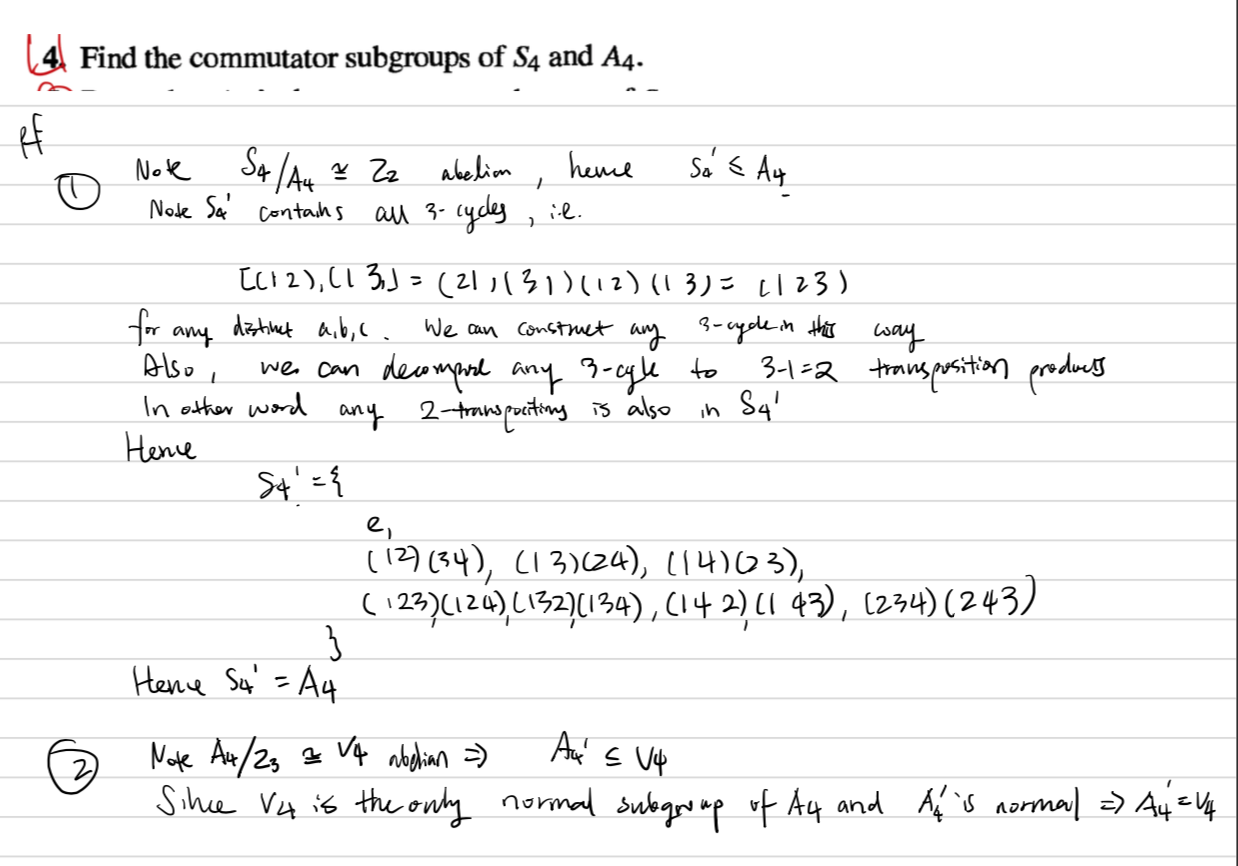 4. Find the commutator subgroups of S₄ and A₄.
Pf
① Note S₄/A₄ ≅ Z₂ abelian, hence S₄' ≤ A₄
Note S₄' contains all 3-cycles, i.e.
[(12),(13)] = (21)(31)(12)(13) = (123)
for any distinct a,b,c. We can construct any 3-cycle in this way
Also, we can decompose any 3-cycle to 3-1=2 transposition products
In other word any 2-transpositions is also in S₄'
Hence
S₄' = {
e,
(12)(34), (13)(24), (14)(23),
(123),(124),(132),(134), (142),(143), (234)(243)
}
Hence S₄' = A₄
② Note A₄/Z₃ ≅ V₄ abelian ⇒ A₄' ≤ V₄
Since V₄ is the only normal subgroup of A₄ and A₄' is normal ⇒ A₄' = V₄